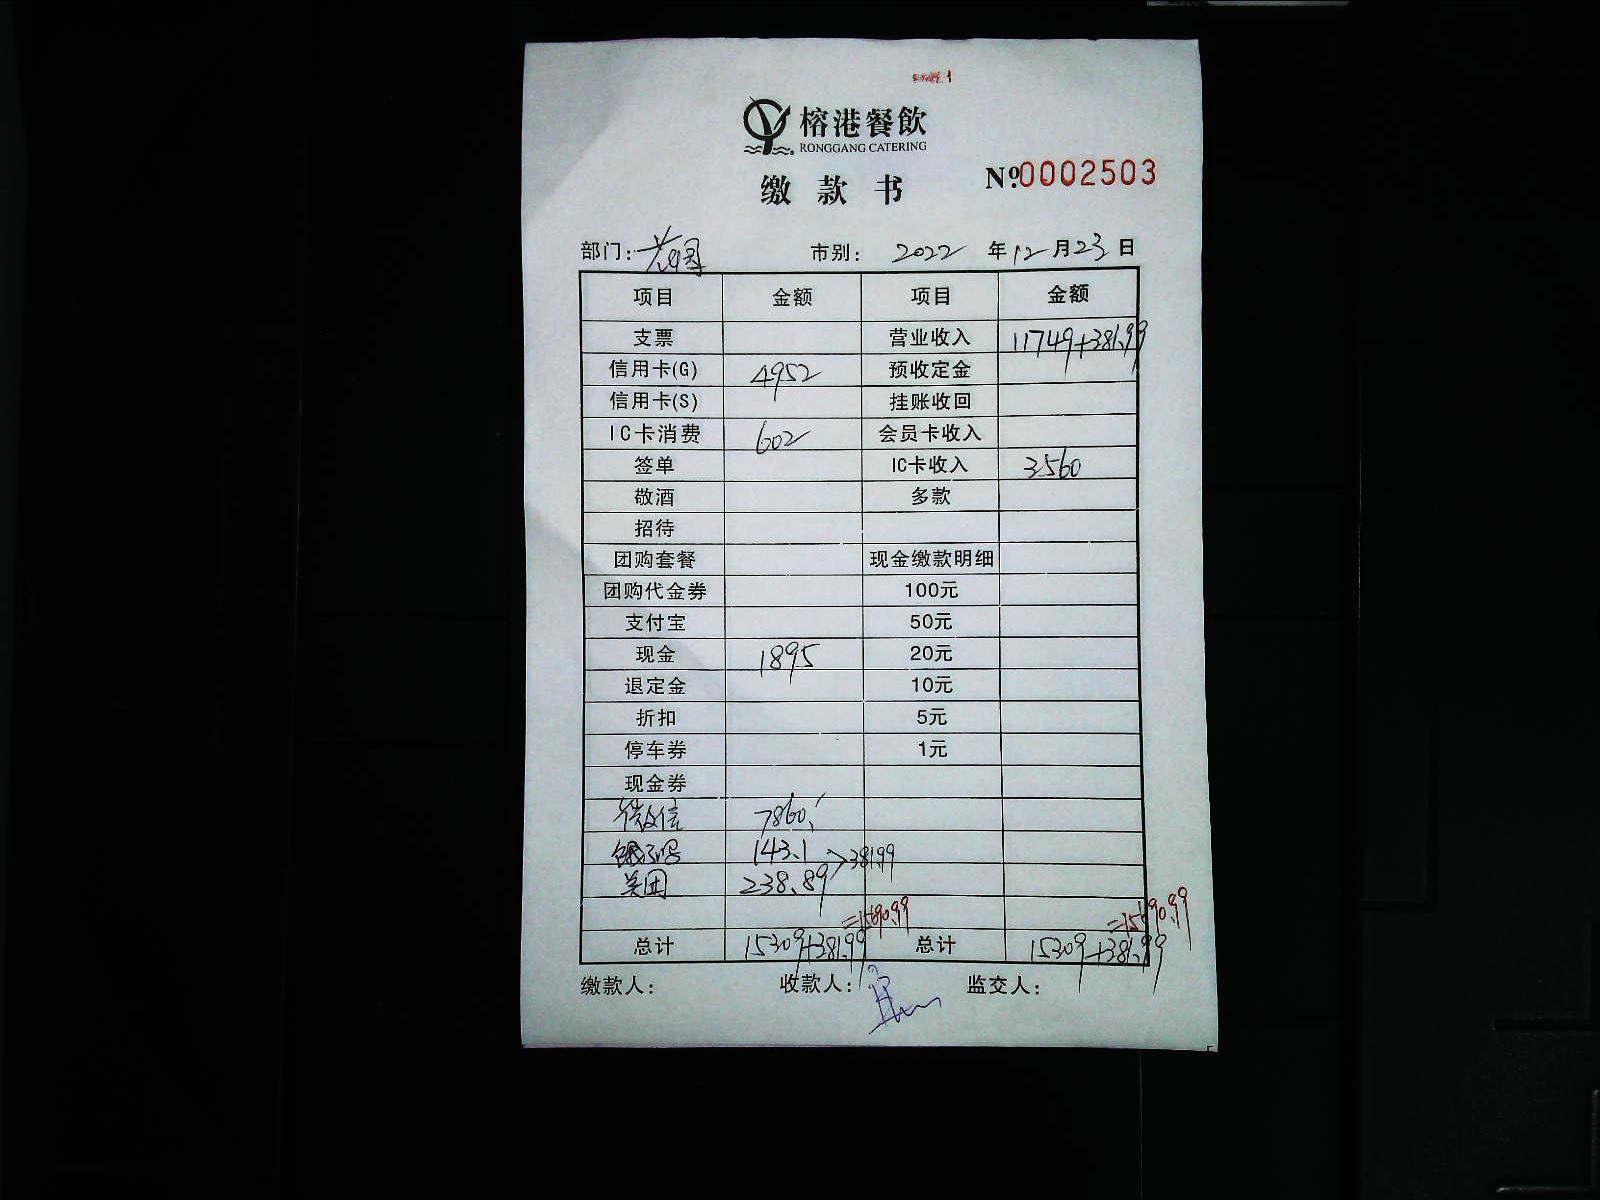 榕港餐飲
RONGGANG CATERING
缴款书 №0002503
部门: 市别: 2022 年 12 月 23 日
项目 金额 项目 金额
支票 营业收入 11749+381.99
信用卡(G) 4952 预收定金
信用卡(S) 挂账收回
IC卡消费 602 会员卡收入
签单 IC卡收入 3560
敬酒 多款
招待
团购套餐 现金缴款明细
团购代金券 100元
支付宝 50元
现金 1895 20元
退定金 10元
折扣 5元
停车券 1元
现金券
微信 7860
饿了吗 143.1 >381.99
美团 238.89
=15690.99 =15690.99
总计 15309+381.99 总计 15309+381.99
缴款人: 收款人: 监交人: